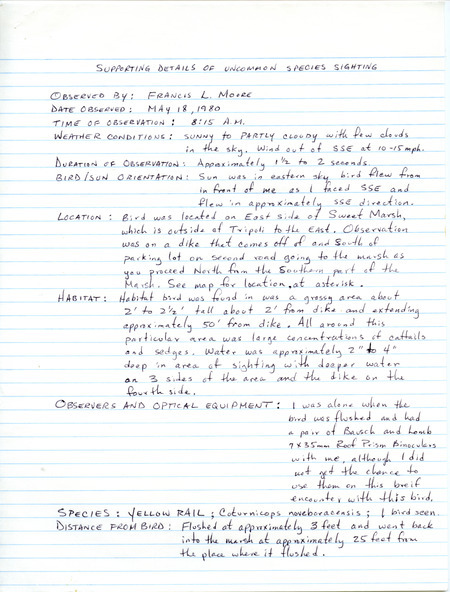 SUPPORTING DETAILS OF UNCOMMON SPECIES SIGHTING
OBSERVED BY: FRANCIS L. MOORE
DATE OBSERVED: MAY 18, 1980
TIME OF OBSERVATION: 8:15 A.M.
WEATHER CONDITIONS: SUNNY TO PARTLY CLOUDY with few clouds
in the sky. Wind out of SSE at 10-15 mph.
DURATION OF OBSERVATION: Approximately 1½ to 2 seconds.
BIRD/SUN ORIENTATION: Sun was in eastern sky, bird flew from
in front of me as I faced SSE and
flew in approximately SSE direction.
LOCATION: Bird was located on East side of Sweet Marsh,
which is outside of Tripoli to the EAST. Observation
was on a dike that comes off of and South of
parking lot on second road going to the marsh as
you proceed North from the Southern part of the
Marsh. See map for location, at asterisk.
HABITAT: Habitat bird was found in was a grassy area about
2' to 2½' tall about 2' from dike and extending
approximately 50' from dike. All around this
particular area was large concentrations of cattails
and sedges. Water was approximately 2" to 4"
deep in area of sighting with deeper water
on 3 sides of the area and the dike on the
fourth side.
OBSERVERS AND OPTICAL EQUIPMENT: I was alone when the
bird was flushed and had
a pair of Bausch and Lomb
7x35mm Roof Prism Binoculars
with me, although I did
not get the chance to
use them on this breif
encounter with this bird.
SPECIES: YELLOW RAIL; Coturnicops noveboracensis; 1 bird seen.
DISTANCE FROM BIRD: Flushed at approximately 3 feet and went back
into the marsh at approximately 25 feet from
the place where it flushed.